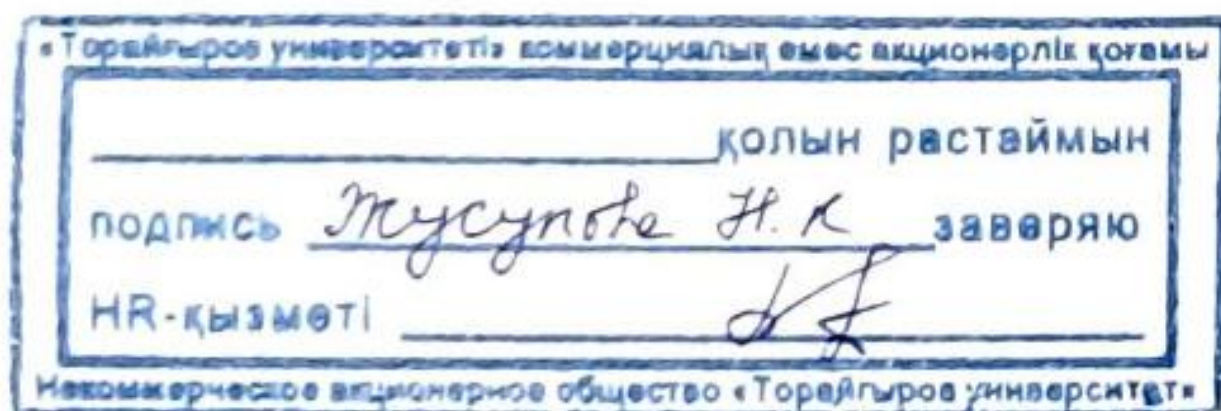 «Торайғыров университеті» коммерциялық емес акционерлік қоғамы
қолын растаймын
подпись Жусупова Н.К заверяю
HR-қызметі
Некоммерческое акционерное общество «Торайғыров университет»